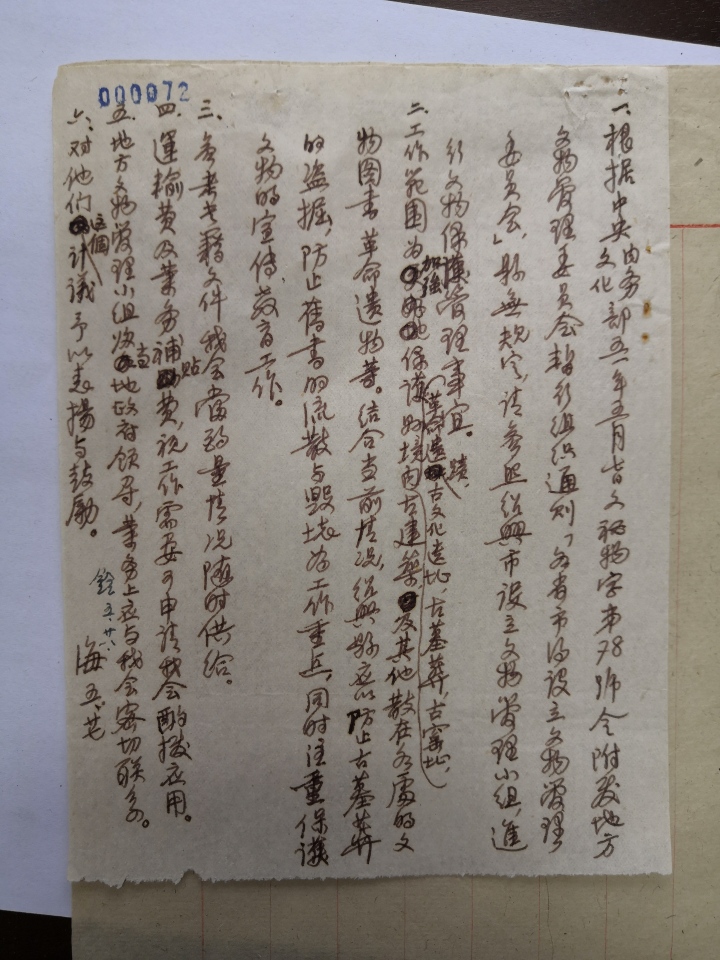 000072
一、根据中央文化内务部五一年五月七日文秘物字第78号令附发地方
文物管理委员会暂行组织通则「各省市得设立文物管理
委员会」县无规定，请参照绍兴市设立文物管理小组，进
行文物保护管理事宜。
二、工作范围为加强保护好境内古建筑（革命遗蹟，古文化遗址，古墓葬，古窑址，及其他散在各处的文
物图书革命遗物等。结合当前情况，绍兴县应以防止古墓葬
的盗掘，防止旧书的流散与毁坏为工作重点，同时注重保护
文物的宣传教育工作。
三、参考书籍文件我会当酌量情况随时供给。
四、运输费及业务补贴费，视工作需要可申请我会酌拨应用。
五、地方文物管理小组放当地政府领导，业务上应与我会密切联系。
六、对他们这个计议予以表扬与鼓励。
海 五、廿七
五、廿八